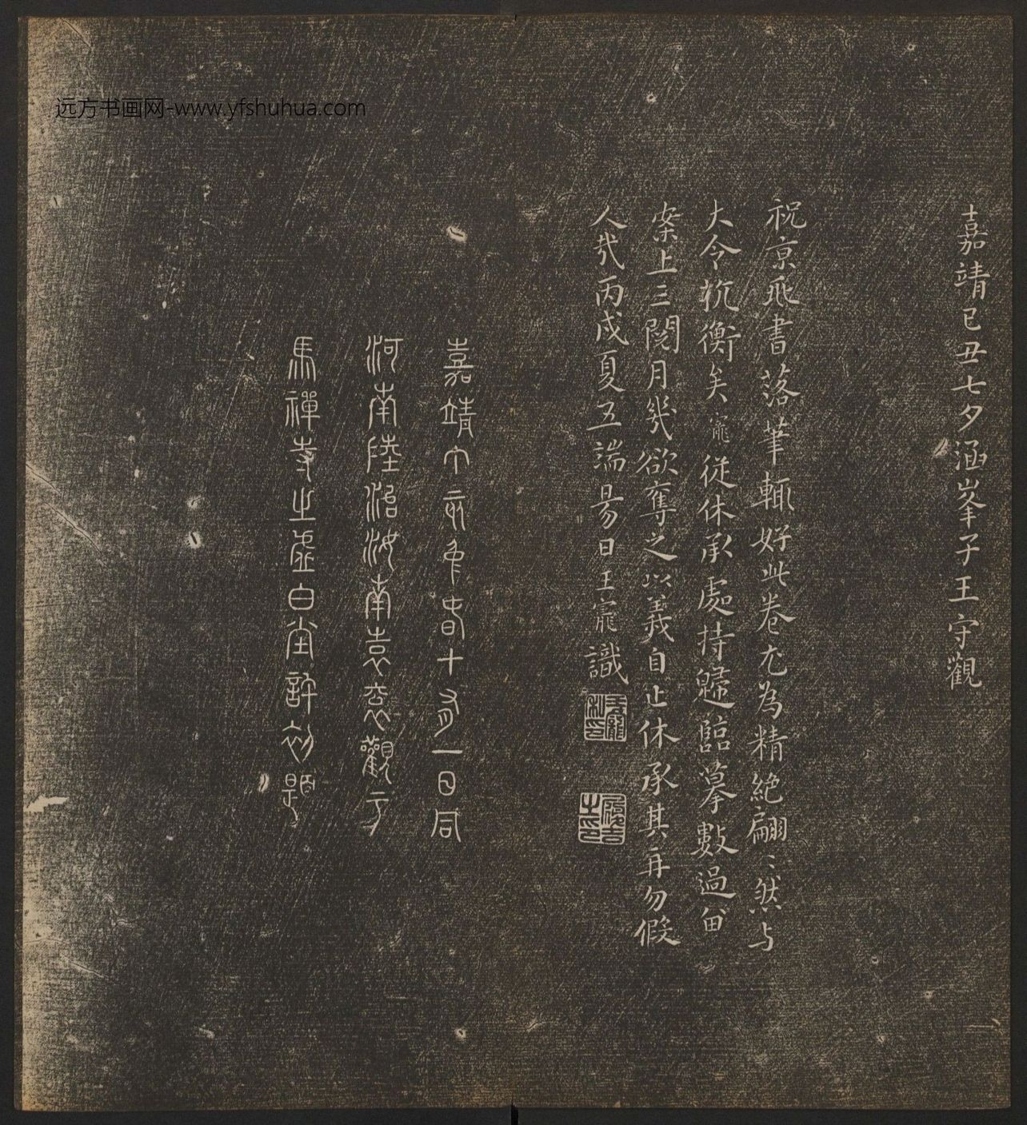 嘉靖己丑七夕涵峯子王守觀
祝京兆書落筆輒好此卷尤為精絕翩〻然与
大令抗衡矣寵從休承處持歸臨摹數過留
案上三閱月幾欲奪之以義自止休承其再勿假
人哉丙戌夏五端昜日王寵識
王寵私印
履吉之印
嘉靖春十有一日同
河南陸治汝南袁袠觀于
馬禪寺之虛白堂許初題
远方书画网-www.yfshuhua.com